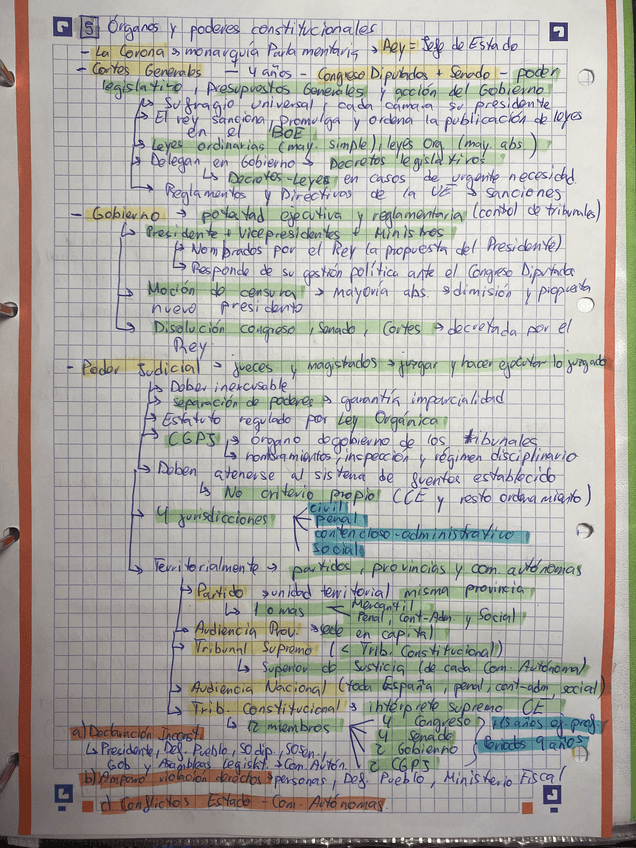 5 Órganos y poderes constitucionales
- La Corona → monarquía Parlamentaria → Rey = Jefe de Estado
- Cortes Generales — 4 años - Congreso Diputados + Senado - poder
legislativo, presupuestos Generales y acción del Gobierno
→ Sufragio universal, cada cámara su presidente
→ El rey sanciona, promulga y ordena la publicación de leyes
en el BOE
→ Leyes ordinarias (may. simple), leyes Org (may. abs)
→ Delegan en Gobierno → Decretos legislativos
↳ Decretos-Leyes en casos de urgente necesidad
→ Reglamentos y Directivas de la UE → sanciones
- Gobierno → potestad ejecutiva y reglamentaria (control de tribunales)
→ Presidente + Vicepresidentes + Ministros
→ Nombrados por el Rey (a propuesta del Presidente)
→ Responde de su gestión política ante el Congreso Diputada
→ Moción de censura → mayoría abs. → dimisión y propuesta
nuevo presidente
→ Disolución congreso, Senado, Cortes → decretada por el
Rey
- Poder Judicial → jueces y magistrados → juzgar y hacer ejecutar lo juzgado
→ Deber inexcusable
→ separación de poderes → garantía imparcialidad
→ Estatuto regulado por Ley Orgánica
→ CGPJ → órgano de gobierno de los tribunales
↳ nombramientos, inspección y régimen disciplinario
→ Deben atenerse al sistema de fuentes establecido
↳ No criterio propio (CE y resto ordenamiento)
→ 4 jurisdicciones
civil
penal
contencioso-administrativo
social
→ Territorialmente → partidos, provincias y com. autónomas
→ Partido → unidad territorial misma provincia
↳ 1 o mas
Mercantil
Penal, Cont-Adm. y Social
→ Audiencia Prov. → sede en capital
→ Tribunal Supremo (< Trib. Constitucional)
↳ Superior de Justicia (de cada Com. Autónoma)
→ Audiencia Nacional (toda España, penal, cont-adm, social)
→ Trib. Constitucional → intérprete supremo CE
↳ 12 miembros
4 Congreso
4 Senado
2 Gobierno
2 CGPJ
>15 años ej. prof.
Periodos 9 años
a) Declaración Inconst
↳ Presidente, Def. Pueblo, 50 dip., 50 Sen.,
Gob y Asambleas Legislat. → Com. Autón.
b) Amparo violación derechos → personas, Def. Pueblo, Ministerio Fiscal
c) Conflictos Estado - Com. Autónomas